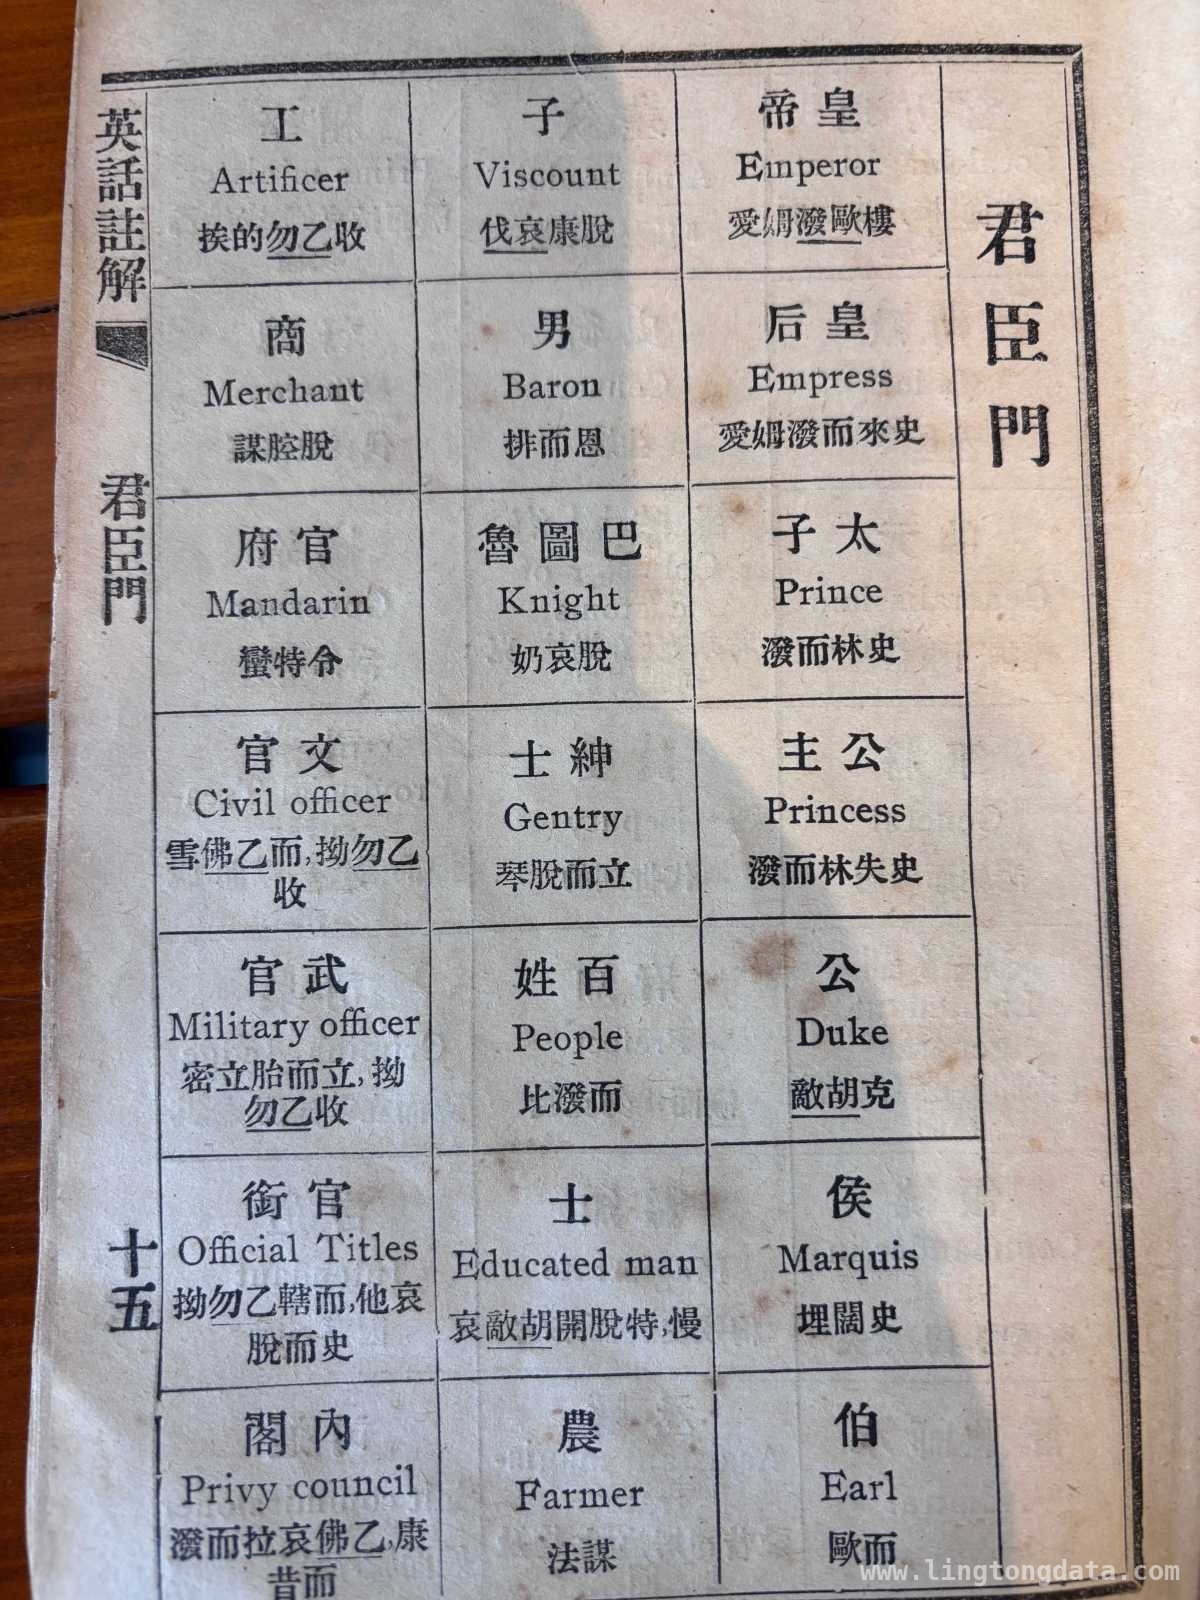 君臣門
皇帝
Emperor
愛姆潑歐樓
皇后
Empress
愛姆潑而來史
太子
Prince
潑而林史
公主
Princess
潑而林失史
公
Duke
敵胡克
侯
Marquis
埋闊史
伯
Earl
歐而
子
Viscount
伐哀康脫
男
Baron
排而恩
巴圖魯
Knight
奶哀脫
紳士
Gentry
琴脫而立
百姓
People
比潑而
士
Educated man
哀敵胡開脫特,慢
農
Farmer
法謀
工
Artificer
挨的勿乙收
商
Merchant
謀腔脫
官府
Mandarin
蠻特令
文官
Civil officer
雪佛乙而,拗勿乙
收
武官
Military officer
密立胎而立,拗
勿乙收
官銜
Official Titles
拗勿乙轄而,他哀
脫而史
內閣
Privy council
潑而拉哀佛乙,康
昔而
英話註解
君臣門
十五
www.lingtongdata.com